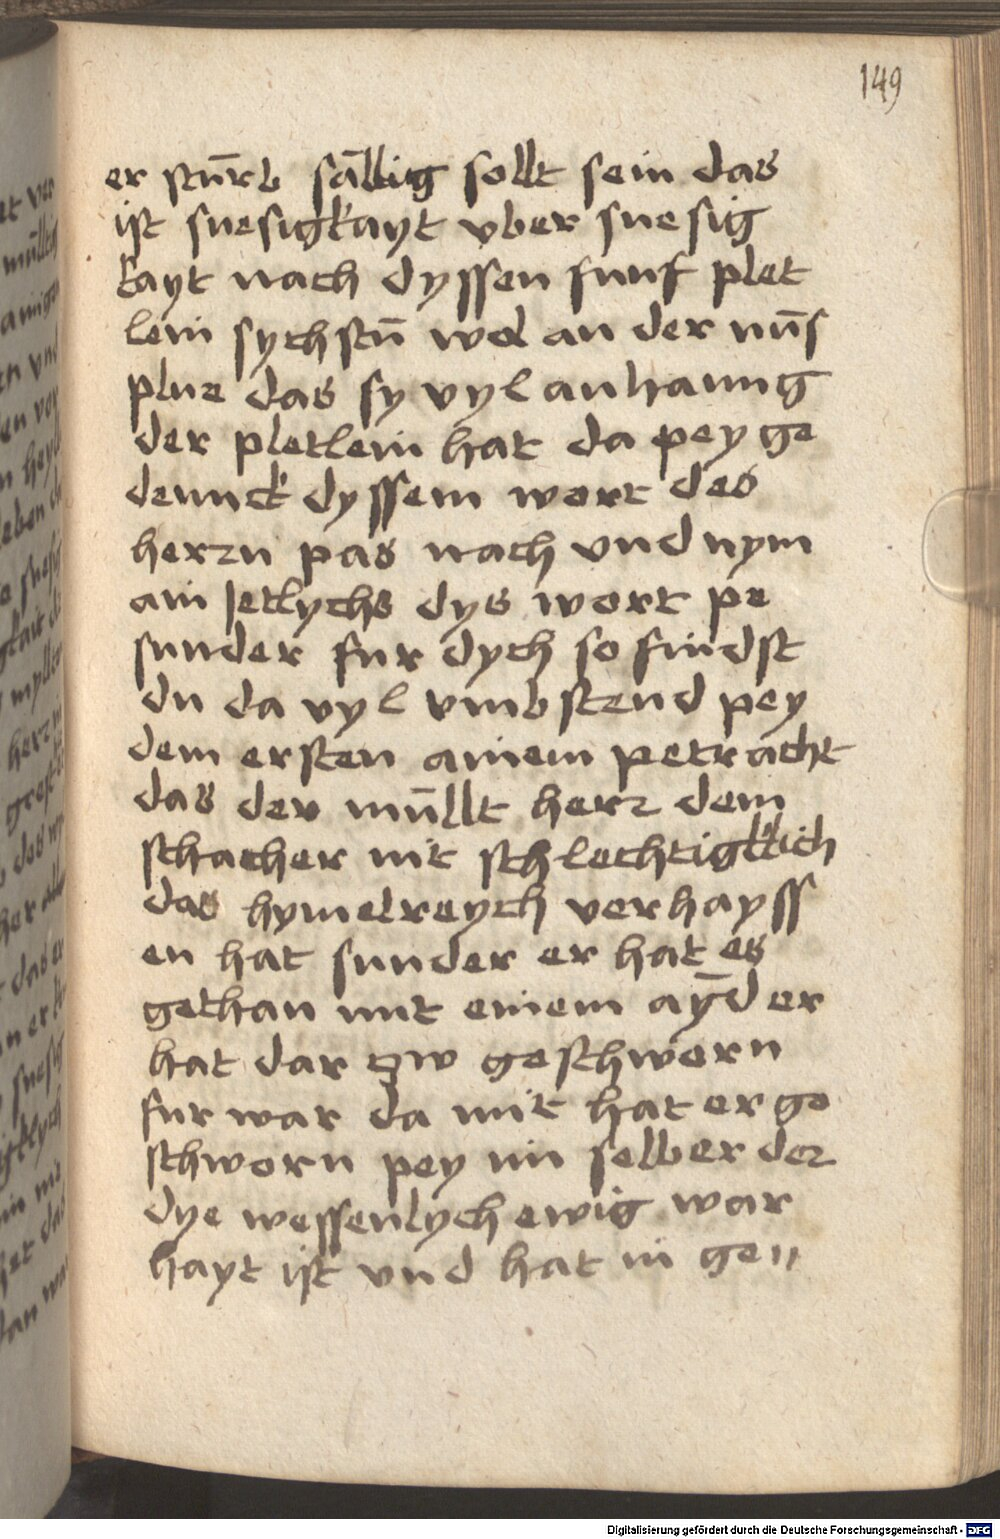 149
er stūrb sāllig sollt sein das
ist suesigkayt vber suesig
kayt nach dyssen funf plet
lein sychstū wol an der mūs
plue das sy vyl anhanng
der pletlein hat da pey ge
dennck dyssem wort des
herrn pas nach vnd nym
ain Jetlychs dys wort pe
sunder fur dych so findst
du da vyl vmbstend pey
dem ersten ainem petracht
das der mūllt herr dem
schacher nit schlechtigklich
das hymelreych verhayss
en hat sunder er hat es
gethan mit einem ayd er
hat dar zw geschworn
fur war da mit hat er ge
schworn pey im selber der
dye wessenlych ewig war
hayt ist vnd hat in ge〃
Digitalisierung gefördert durch die Deutsche Forschungsgemeinschaft - DFG